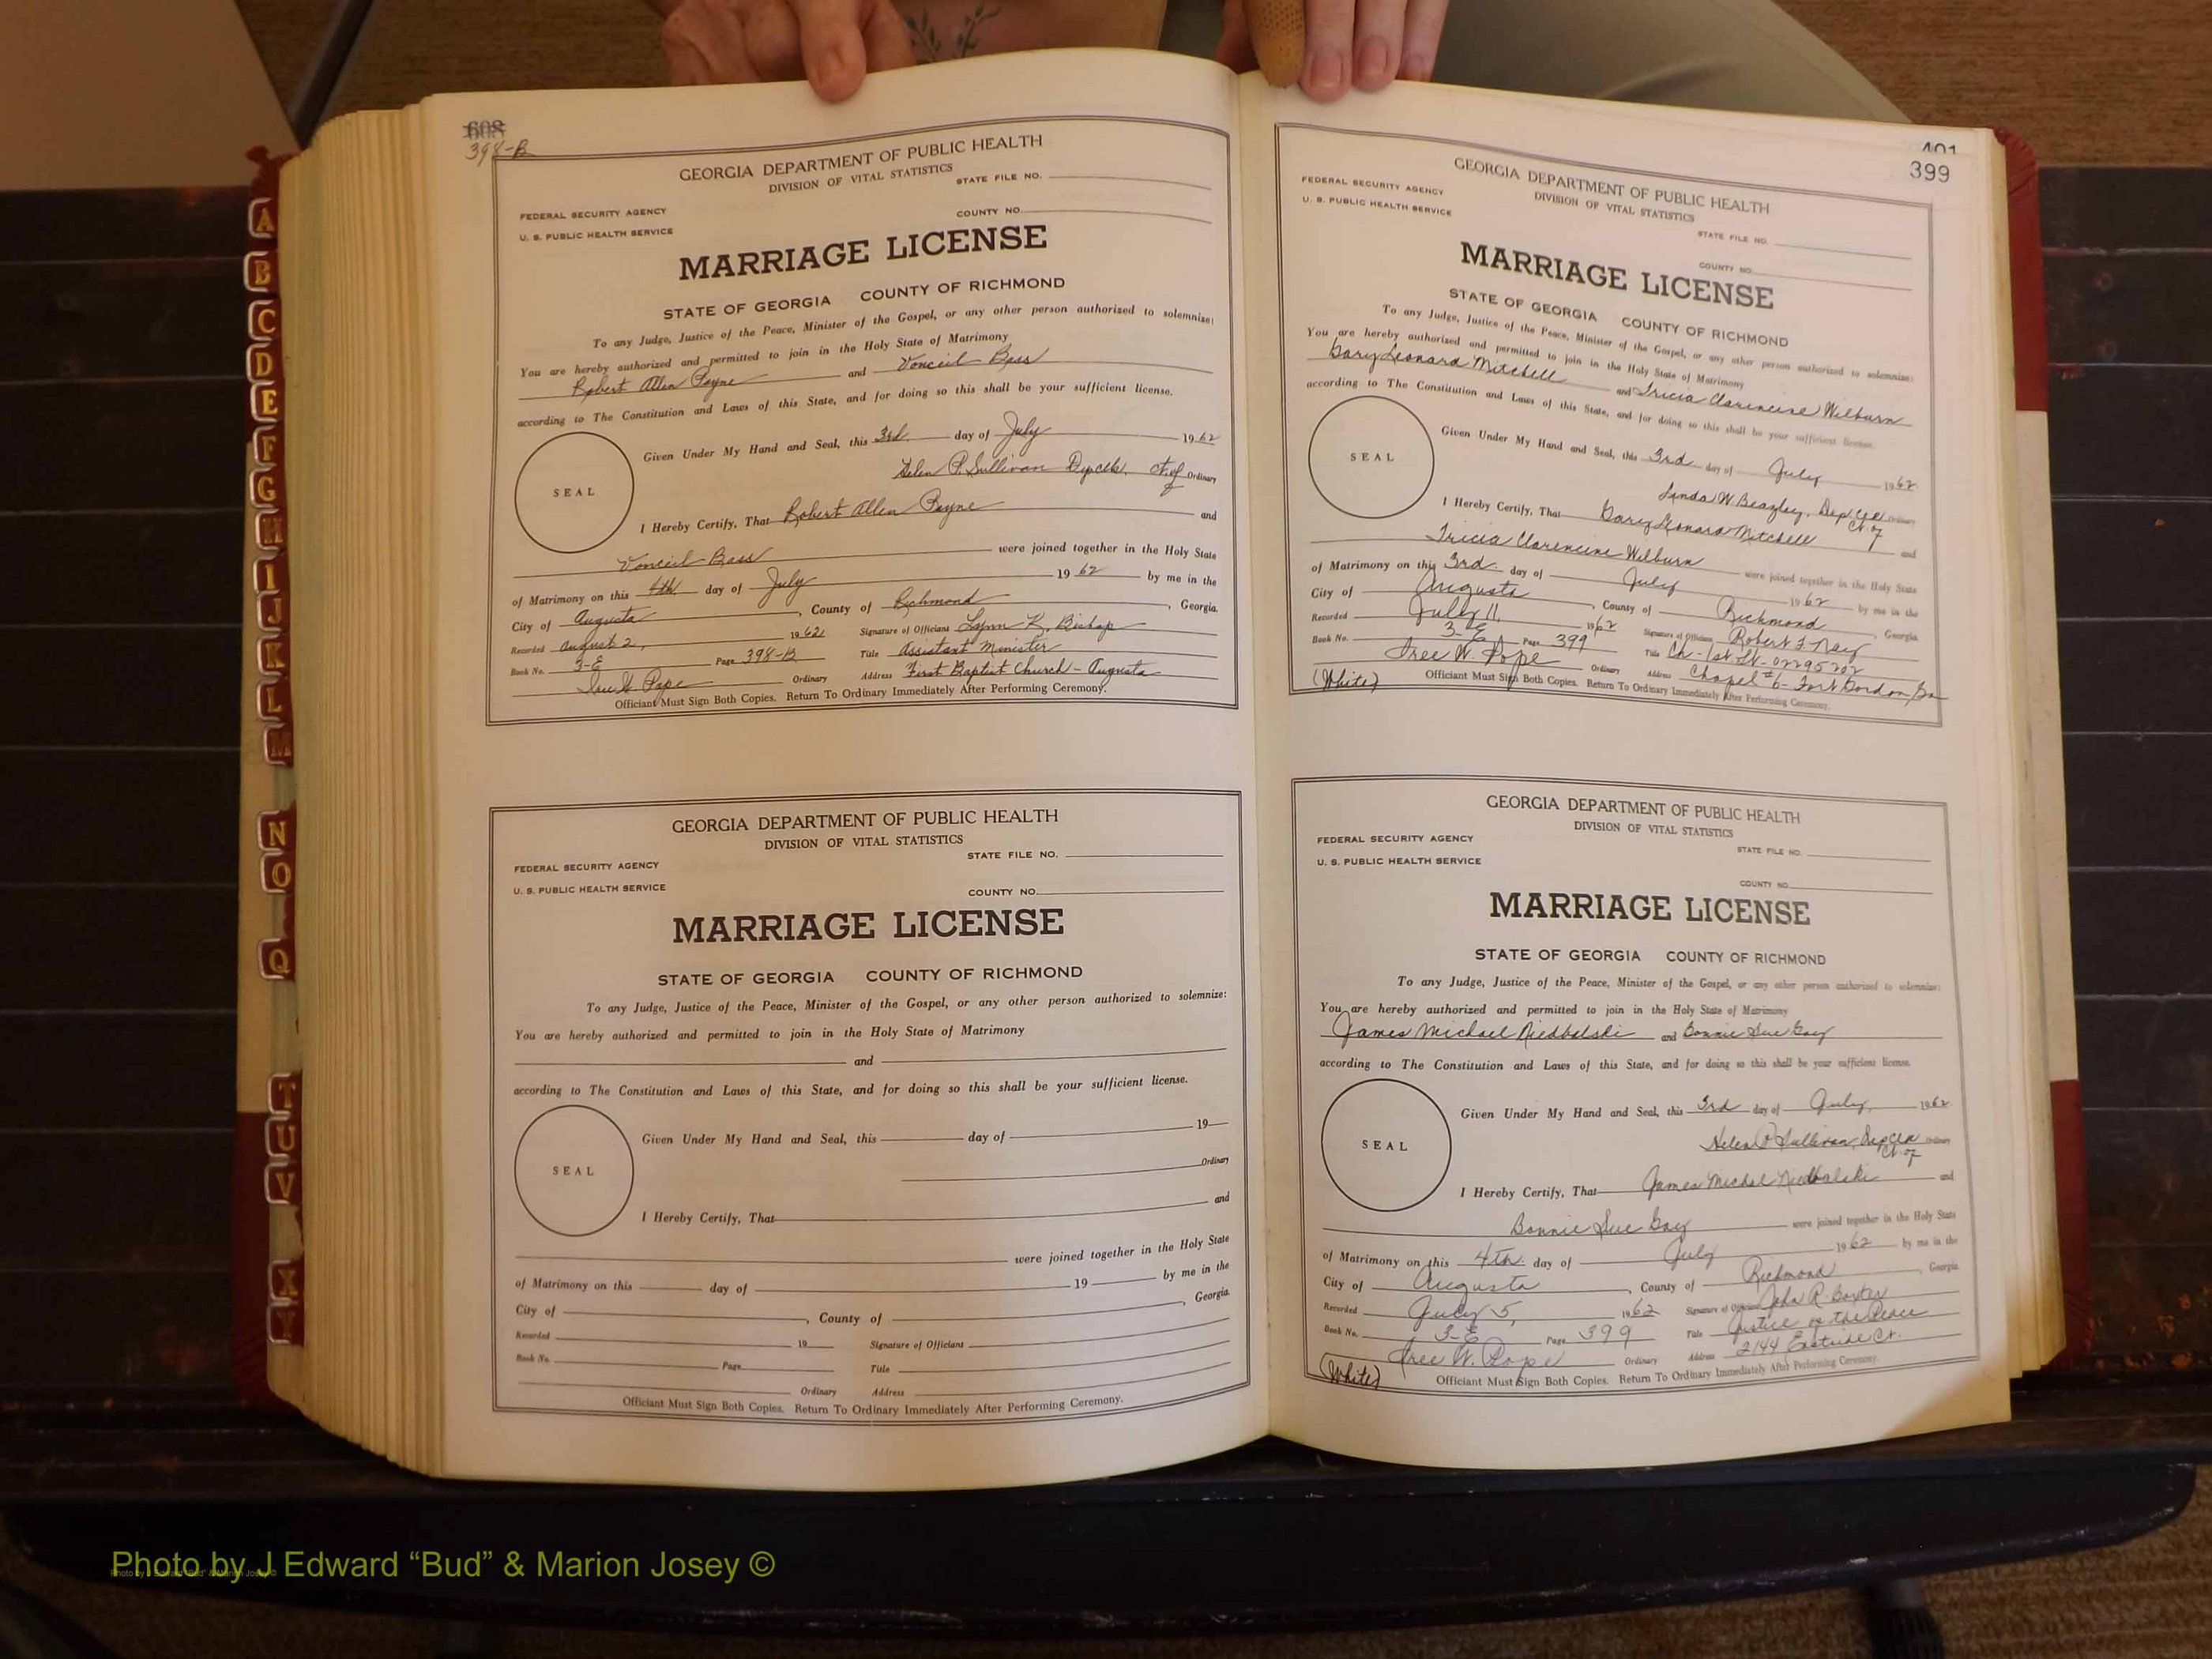 A
B
C
D
E
F
G
H
I
J
K
L
M
N
O
Q
T
U
V
X
Y
608
398-B
GEORGIA DEPARTMENT OF PUBLIC HEALTH
DIVISION OF VITAL STATISTICS
STATE FILE NO.
FEDERAL SECURITY AGENCY
COUNTY NO.
U. S. PUBLIC HEALTH SERVICE
MARRIAGE LICENSE
STATE OF GEORGIA COUNTY OF RICHMOND
To any Judge, Justice of the Peace, Minister of the Gospel, or any other person authorized to solemnize:
You are hereby authorized and permitted to join in the Holy State of Matrimony
Robert Allen Payne and Vonceil Bass
according to The Constitution and Laws of this State, and for doing so this shall be your sufficient license.
Given Under My Hand and Seal, this 3rd day of July 1962
Helen P. Sullivan Ordinary
SEAL
I Hereby Certify, That Robert Allen Payne and
Vonceil Bass were joined together in the Holy State
of Matrimony on this 4th day of July 1962 by me in the
City of Augusta, County of Richmond, Georgia.
Recorded August 2, 1962 Signature of Officiant Lynn K. Bishop
Book No. 3-E Page 398-B Title Assistant Minister
Ordinary Address First Baptist Church - Augusta
Officiant Must Sign Both Copies. Return To Ordinary Immediately After Performing Ceremony.
GEORGIA DEPARTMENT OF PUBLIC HEALTH
DIVISION OF VITAL STATISTICS
STATE FILE NO.
FEDERAL SECURITY AGENCY
U. S. PUBLIC HEALTH SERVICE
COUNTY NO.
MARRIAGE LICENSE
STATE OF GEORGIA COUNTY OF RICHMOND
To any Judge, Justice of the Peace, Minister of the Gospel, or any other person authorized to solemnize:
You are hereby authorized and permitted to join in the Holy State of Matrimony
and
according to The Constitution and Laws of this State, and for doing so this shall be your sufficient license.
Given Under My Hand and Seal, this day of 19
Ordinary
SEAL
I Hereby Certify, That and
were joined together in the Holy State
of Matrimony on this day of 19 by me in the
City of , County of , Georgia.
Recorded 19 Signature of Officiant
Book No. Page Title
Ordinary Address
Officiant Must Sign Both Copies. Return To Ordinary Immediately After Performing Ceremony.
401
399
GEORGIA DEPARTMENT OF PUBLIC HEALTH
DIVISION OF VITAL STATISTICS
FEDERAL SECURITY AGENCY
U. S. PUBLIC HEALTH SERVICE
STATE FILE NO.
COUNTY NO.
MARRIAGE LICENSE
STATE OF GEORGIA COUNTY OF RICHMOND
To any Judge, Justice of the Peace, Minister of the Gospel, or any other person authorized to solemnize:
You are hereby authorized and permitted to join in the Holy State of Matrimony
Gary Leonard Mitchell and Tricia Clarencine Wilburn
according to The Constitution and Laws of this State, and for doing so this shall be your sufficient license.
Given Under My Hand and Seal, this 3rd day of July 1962
Linda W. Beazley, Ordinary
SEAL
I Hereby Certify, That Gary Leonard Mitchell and
Tricia Clarencine Wilburn were joined together in the Holy State
of Matrimony on this 3rd day of July 1962 by me in the
City of Augusta, County of Richmond, Georgia
Recorded July 11, 1962 Signature of Officiant Robert F Ney
Book No. 3-E Page 399 Title Ch-1st Lt-02295202
Ordinary Address Chapel #6-Fort Gordon, Ga
(White) Officiant Must Sign Both Copies. Return To Ordinary Immediately After Performing Ceremony.
GEORGIA DEPARTMENT OF PUBLIC HEALTH
DIVISION OF VITAL STATISTICS
FEDERAL SECURITY AGENCY
STATE FILE NO.
U. S. PUBLIC HEALTH SERVICE
COUNTY NO.
MARRIAGE LICENSE
STATE OF GEORGIA COUNTY OF RICHMOND
To any Judge, Justice of the Peace, Minister of the Gospel, or any other person authorized to solemnize:
You are hereby authorized and permitted to join in the Holy State of Matrimony
James Michael Niedbalski and Bonnie Sue Gay
according to The Constitution and Laws of this State, and for doing so this shall be your sufficient license.
Given Under My Hand and Seal, this 3rd day of July, 1962
Helen P Sullivan, Ordinary
SEAL
I Hereby Certify, That James Michal Niedbalski and
Bonnie Sue Gay were joined together in the Holy State
of Matrimony on this 4th day of July 1962 by me in the
City of Augusta, County of Richmond, Georgia
Recorded July 5, 1962 Signature of Officiant John R. Baxter
Book No. 3-E Page 399 Title Justice of the Peace
Ordinary Address 2144 Eastside Ct.
(White) Officiant Must Sign Both Copies. Return To Ordinary Immediately After Performing Ceremony.
Photo by J Edward “Bud” & Marion Josey ©
Photo by J Edward "Bud" & Marion Josey ©